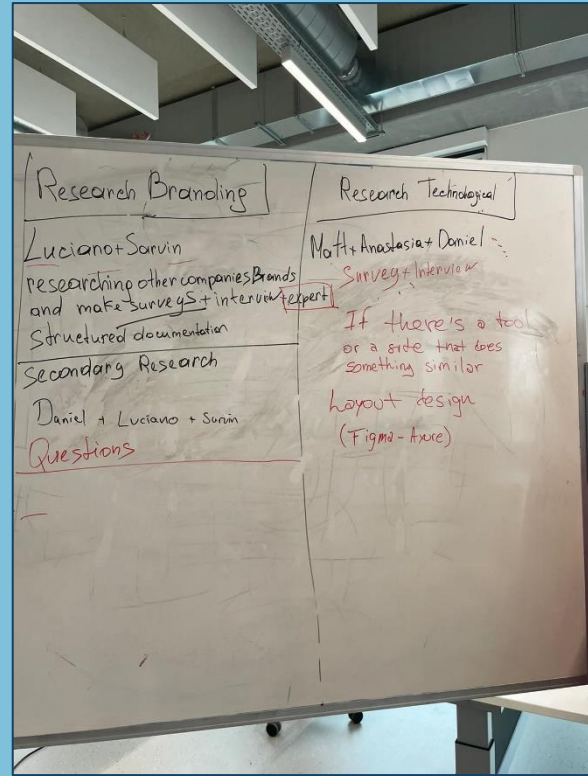 Research Branding
Luciano + Sarvin
researching other companies Brands
and make surveys + interview + expert
Structured documentation
Secondary Research
Daniel + Luciano + Sarvin
Questions
Research Technological
Matt + Anastasia + Daniel
Survey + Interview
If there's a tool
or a side that does
something similar
Layout design
(Figma - Axure)